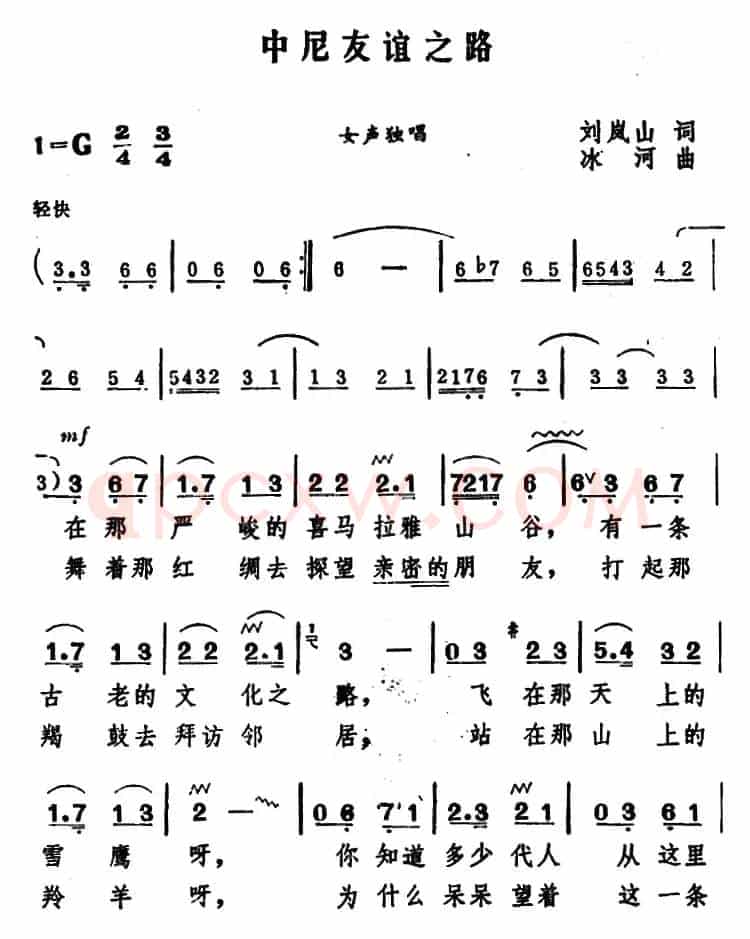 中尼友谊之路
1=G 2/4 3/4 女声独唱 刘岚山 词
冰河 曲
轻快
(3.3 6 6 | 0 6 0 6 :| 6 — | 6 ♭7 6 5 | 6543 4 2 |
2 6 5 4 | 5432 3 1 | 1 3 2 1 | 2176 7 3 | 3 3 3 3 |
mf
3) 3 6 7 | 1.7 1 3 | 2 2 2.1 | 7217 6 | 6 3 6 7 |
在那严峻的喜马拉雅山谷，有一条
舞着那红绸去探望亲密的朋友，打起那
1.7 1 3 | 2 2 2.1 | 3 — | 0 3 #2 3 | 5.4 3 2 |
古老的文化之路，飞在那天上的
羯鼓去拜访邻居，站在那山上的
1.7 1 3 | 2 — | 0 6 7 1 | 2.3 2 1 | 0 3 6 1 |
雪鹰呀，你知道多少代人从这里
羚羊呀，为什么呆呆望着这一条
qpcxw.com